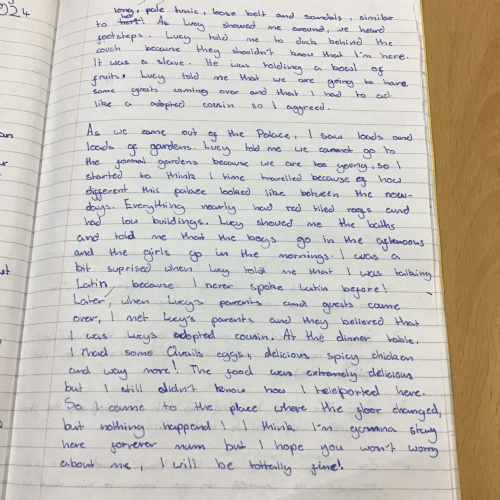 024
long, pale tunic, loose belt and sandals, similar
to her! As Lucy showed me around, we heard
footsteps. Lucy told me to duck behind the
couch because they shouldn't know that I'm here.
It was a slave. He was holding a bowl of
fruits, Lucy told me that we are going to have
some guests coming over and that I had to act
like a adopted cousin so I aggreed.
As we came out of the Palace, I saw loads and
loads of gardens. Lucy told me we cannot go to
the formal gardens because we are too young, so I
started to think I time travelled because of how
different this palace looked like between the now-
days. Everything nearly had red tiled roofs and
had low buildings. Lucy showed me the baths
and told me that the boys go in the afternoons
and the girls go in the mornings. I was a
bit suprised when Lucy told me that I was talking
Latin because I never spoke Latin before!
Later, when Lucy's parents and guests came
over, I met Lucy's parents and they believed that
I was Lucy's adopted cousin. At the dinner table,
I had some Quails eggs, delicious spicy chicken
and way more! The food was extremely delicious
but I still didn't know how I teleported here.
So I came to the place where the floor changed,
but nothing happend! I think I'm gonna stay
here forrever mum but I hope you won't worry
about me, I will be tottally fine!